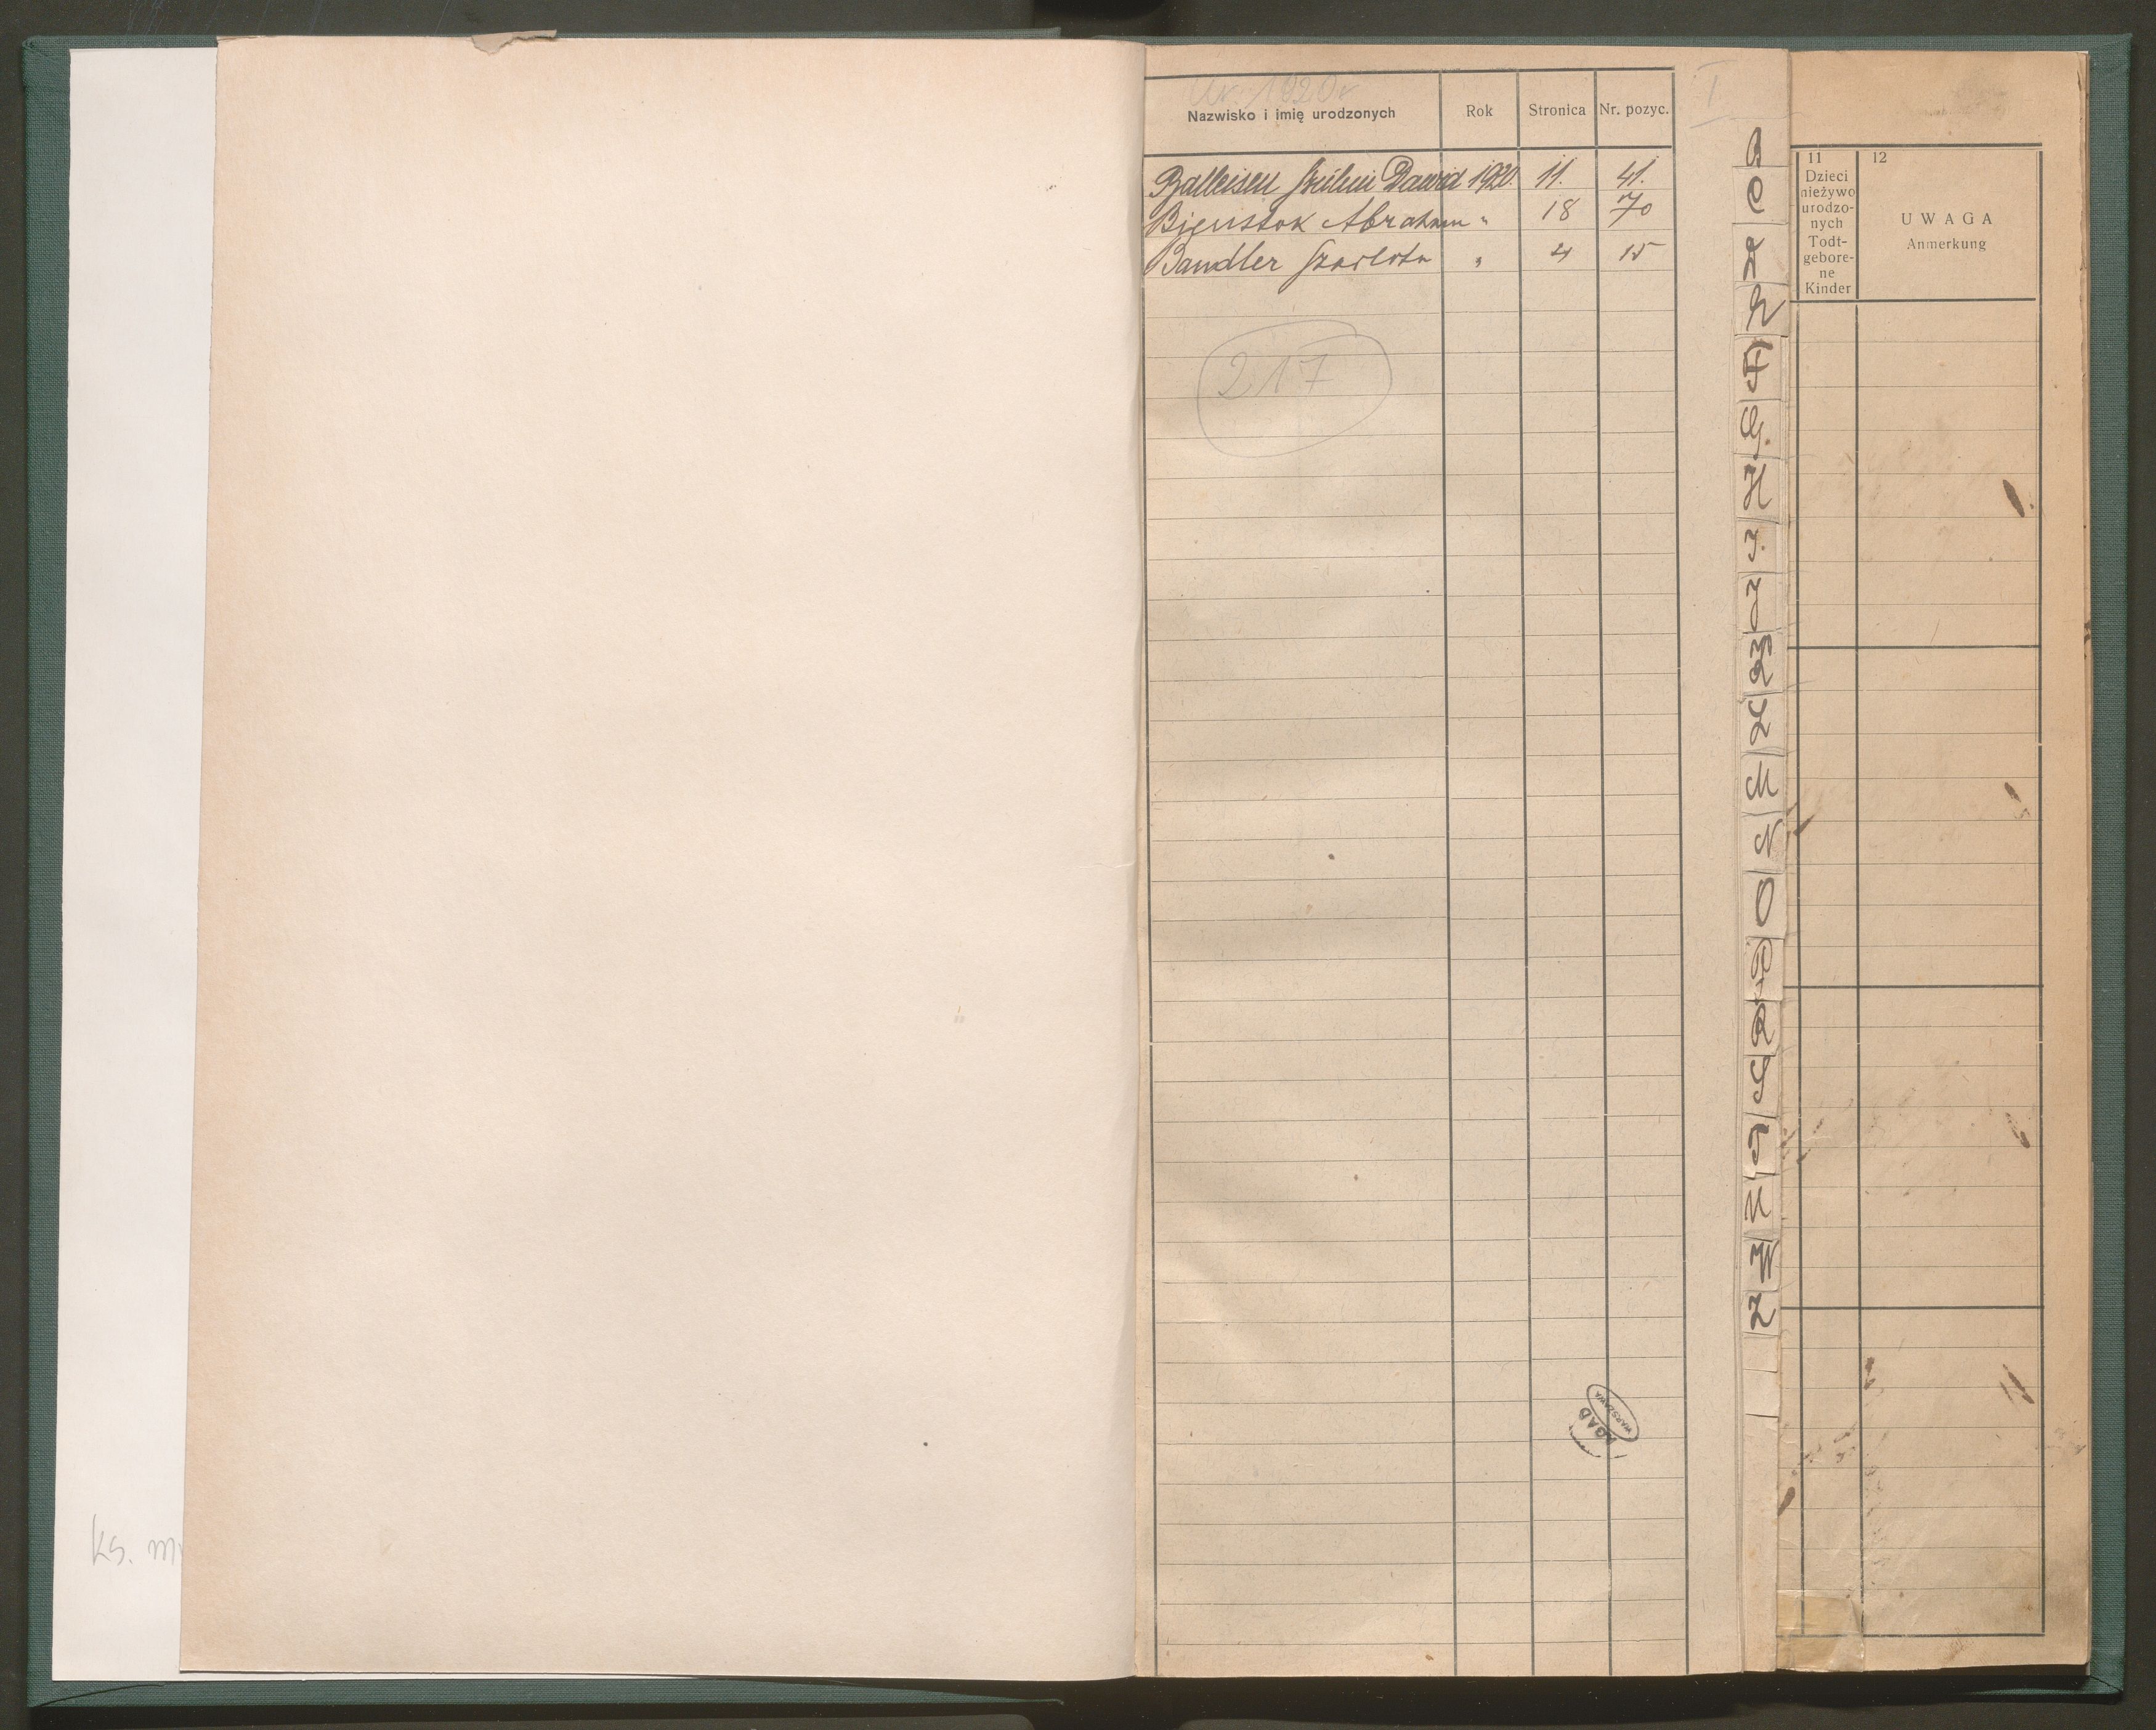 Ur. 1920 r
Nazwisko i imię urodzonych Rok Stronica Nr. pozyc.
I
Balleisen Szulim Dawid 1920. 11. 41.
Bienstok Abraham " 18 70
Bandler Szarlota " 4 15
217
B
C
D
E
F
G.
H
I.
J
K
L
M
N
O
P
R
S
T
U
W
Z
11
Dzieci
nieżywo
urodzo-
nych
Todt-
gebore-
ne
Kinder
12
UWAGA
Anmerkung
AGAD
WARSZAWA
ks.